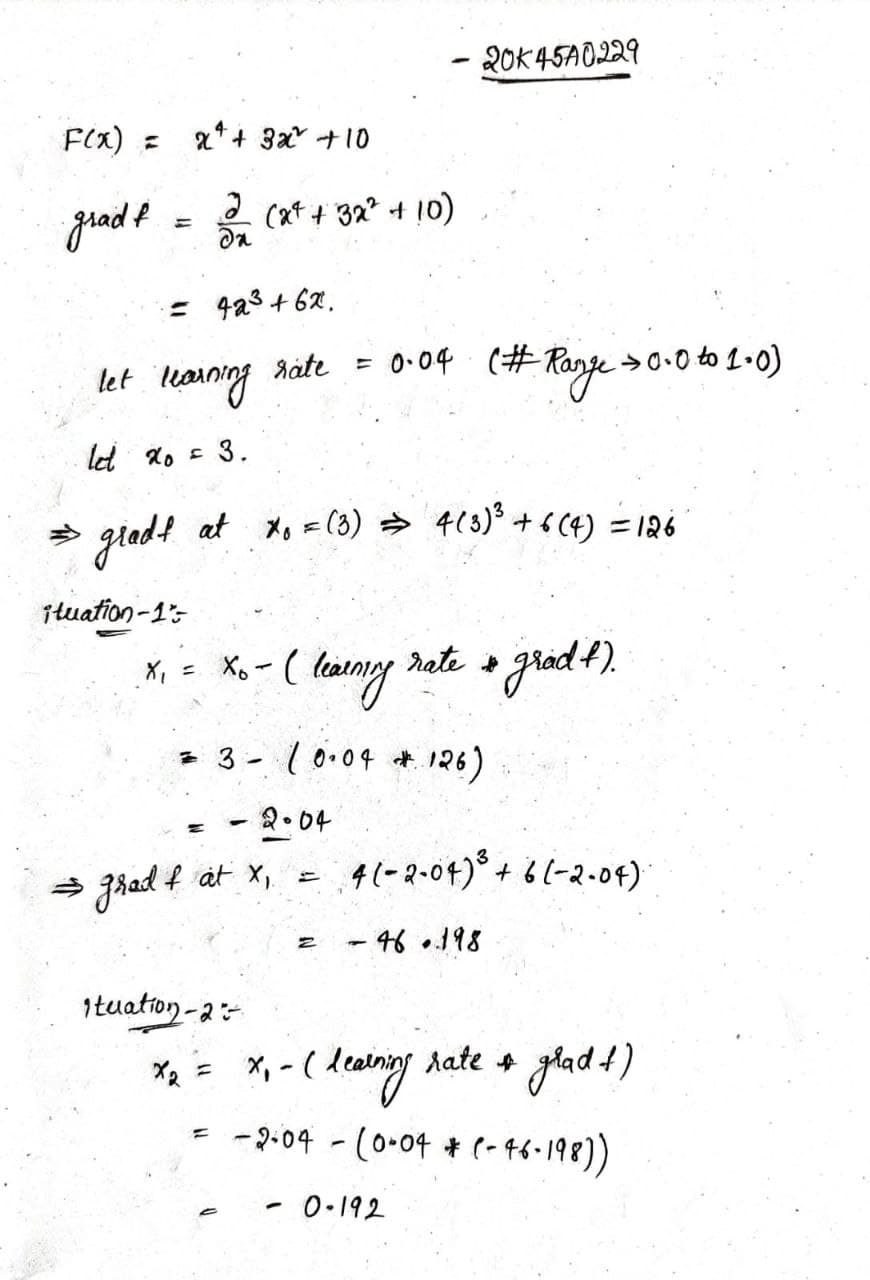 - 20K45A0229
F(x) = x⁴ + 3x² + 10
grad f = ∂/∂x (x⁴ + 3x² + 10)
= 4x³ + 6x.
let learning rate = 0.04 (# Range → 0.0 to 1.0)
let x₀ = 3.
⇒ grad f at x₀ = (3) ⇒ 4(3)³ + 6(4) = 126
iteration-1:-
x₁ = x₀ - ( learning rate * grad f).
= 3 - (0.04 * 126)
= - 2.04
⇒ grad f at x₁ = 4(-2.04)³ + 6(-2.04)
= - 46.198
iteration-2:-
x₂ = x₁ - ( learning rate * grad f)
= -2.04 - (0.04 * (-46.198))
= - 0.192